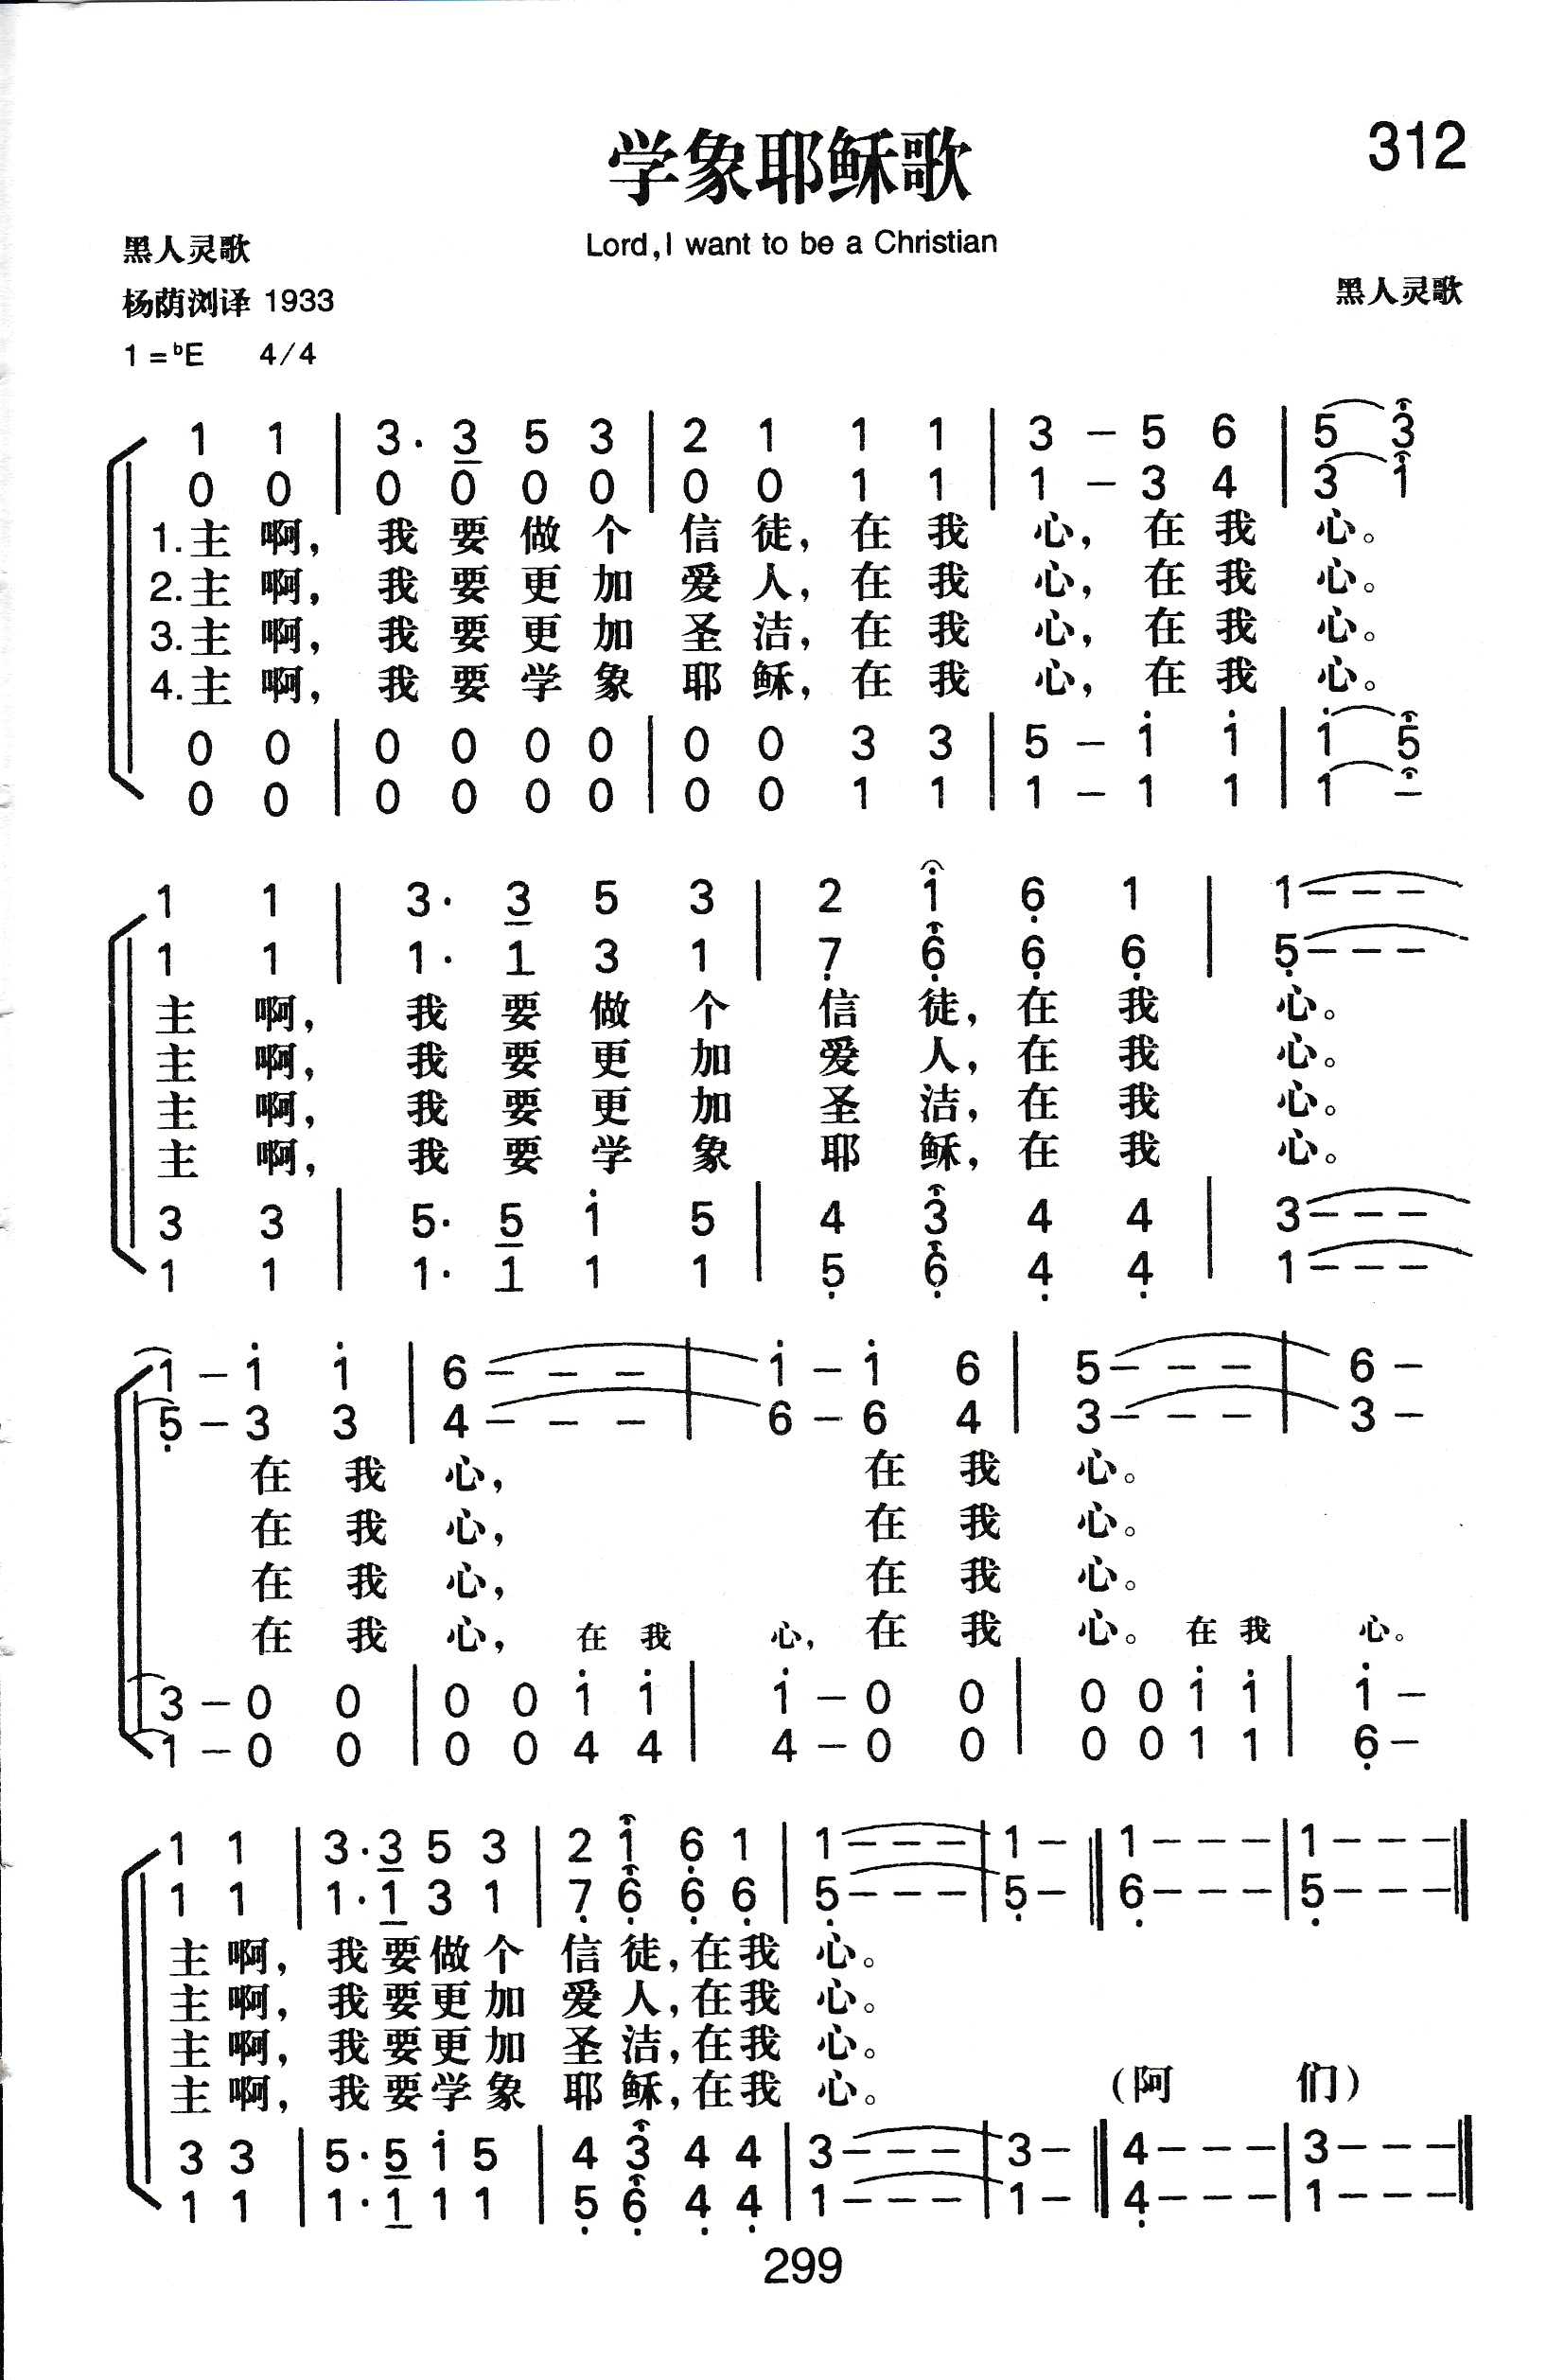 312
学象耶稣歌
Lord, I want to be a Christian
黑人灵歌
杨荫浏译 1933
黑人灵歌
1=ᵇE 4/4
1 1 | 3· 3 5 3 | 2 1 1 1 | 3 – 5 6 | 5 3
0 0 | 0 0 0 0 | 0 0 1 1 | 1 – 3 4 | 3 1
1.主 啊, 我 要 做 个 信 徒, 在 我 心, 在 我 心。
2.主 啊, 我 要 更 加 爱 人, 在 我 心, 在 我 心。
3.主 啊, 我 要 更 加 圣 洁, 在 我 心, 在 我 心。
4.主 啊, 我 要 学 象 耶 稣, 在 我 心, 在 我 心。
0 0 | 0 0 0 0 | 0 0 3 3 | 5 – i i | i 5
0 0 | 0 0 0 0 | 0 0 1 1 | 1 – 1 1 | 1 –
1 1 | 3· 3 5 3 | 2 1 6̣ 1 | 1 – – –
1 1 | 1· 1 3 1 | 7̣ 6̣ 6̣ 6̣ | 5̣ – – –
主 啊, 我 要 做 个 信 徒, 在 我 心。
主 啊, 我 要 更 加 爱 人, 在 我 心。
主 啊, 我 要 更 加 圣 洁, 在 我 心。
主 啊, 我 要 学 象 耶 稣, 在 我 心。
3 3 | 5· 5 i 5 | 4 3 4 4 | 3 – – –
1 1 | 1· 1 1 1 | 5̣ 6̣ 4̣ 4̣ | 1 – – –
1 – i i | 6 – – – | i – i 6 | 5 – – – | 6 –
5̣ – 3 3 | 4 – – – | 6 – 6 4 | 3 – – – | 3 –
在 我 心, 在 我 心。
在 我 心, 在 我 心。
在 我 心, 在 我 心。
在 我 心, 在 我 心, 在 我 心。 在 我 心。
3 – 0 0 | 0 0 i i | i – 0 0 | 0 0 i i | i –
1 – 0 0 | 0 0 4 4 | 4 – 0 0 | 0 0 1 1 | 6̣ –
1 1 | 3· 3 5 3 | 2 1 6̣ 1 | 1 – – – | 1 – ‖ 1 – – – | 1 – – – ‖
1 1 | 1· 1 3 1 | 7̣ 6̣ 6̣ 6̣ | 5̣ – – – | 5̣ – ‖ 6̣ – – – | 5̣ – – – ‖
主 啊, 我 要 做 个 信 徒, 在 我 心。
主 啊, 我 要 更 加 爱 人, 在 我 心。
主 啊, 我 要 更 加 圣 洁, 在 我 心。
主 啊, 我 要 学 象 耶 稣, 在 我 心。 (阿 们)
3 3 | 5· 5 i 5 | 4 3 4 4 | 3 – – – | 3 – ‖ 4 – – – | 3 – – – ‖
1 1 | 1· 1 1 1 | 5̣ 6̣ 4̣ 4̣ | 1 – – – | 1 – ‖ 4̣ – – – | 1 – – – ‖
299